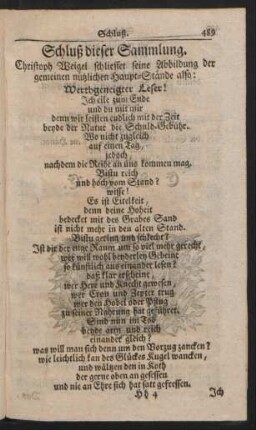 Schluß. 489
Schluß dieser Sammlung.
Christoph Weigel schliesset seine Abbildung der
gemeinen nützlichen Haupt-Stände also:
Werthgeneigter Leser!
Ich eile zum Ende
und du mit mir
denn wir leisten endlich mit der Zeit
beyde der Natur die Schuld-Gebühr.
Wo nicht zugleich
auf einen Tag,
jedoch,
nachdem die Reihe an uns kommen mag.
Bistu reich
und hoch vom Stand?
wisse!
Es ist Eitelkeit,
denn deine Hoheit
bedecket mit des Grabes Sand
ist nicht mehr in den alten Stand.
Bistu gering und schlecht?
Ist dir der eine Raum um so viel mehr gerecht,
wer will wohl beyderley Gebeint
so künstlich aus einander lesen?
daß klar erscheint,
wer Herr und Knecht gewesen,
wer Cron und Zepter trug
wer den Hobel oder Pflug
zu seiner Nahrung hat geführet.
Sind nun im Tod
beyde arm und reich
einander gleich?
was will man sich denn um den Vorzug zancken?
wie leichtlich kan des Glückes Kugel wancken,
und wältzen den in Koth
der gerne oben an gesessen
und nie an Ehre sich hat satt gefressen.
Hh 4 Ich